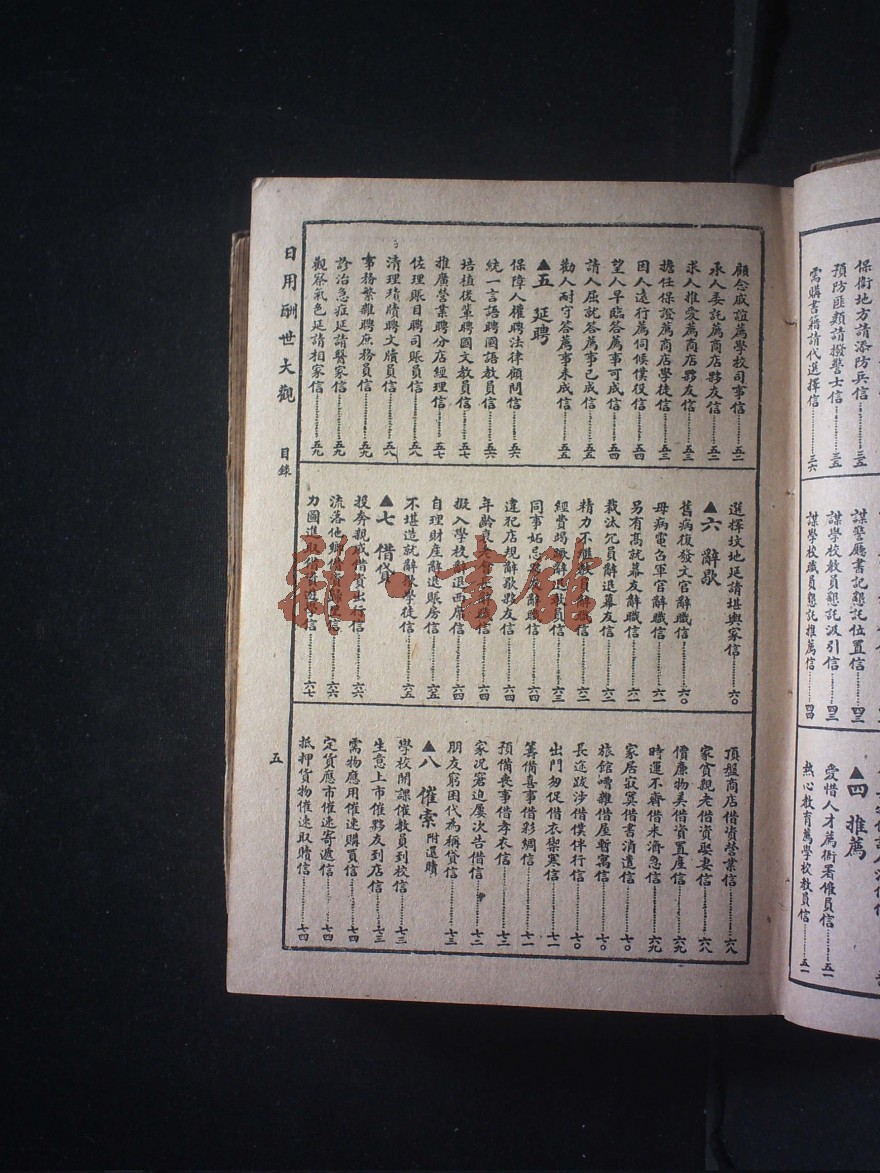 保衛地方請添防兵信……三五
預防匪類請撥警士信……三五
需購書籍請代選擇信……三六
謀警廳書記懇託位置信……四三
謀學校教員懇託汲引信……四三
謀學校職員懇託推薦信……四四
▲四 推薦
愛惜人才薦衙署僱員信……五一
熱心教育薦學校教員信……五一
顧念戚誼薦學校司事信……五二
承人委託薦商店夥友信……五二
求人推愛薦商店夥友信……五三
擔任保證薦商店學徒信……五三
因人遠行薦伺候僕役信……五四
望人早臨答薦事可成信……五四
請人屈就答薦事已成信……五五
勸人耐守答薦事未成信……五五
▲五 延聘
保障人權聘法律顧問信……五六
統一言語聘國語教員信……五六
培植後輩聘國文教員信……五七
推廣營業聘分店經理信……五七
佐理賬目聘司賬員信……五八
清理積牘聘文牘員信……五八
事務繁雜聘庶務員信……五九
診治急症延請醫家信……五九
觀察氣色延請相家信……五九
選擇墳地延請堪輿家信……六〇
▲六 辭歇
舊病復發文官辭職信……六〇
母病電召軍官辭職信……六一
另有高就幕友辭職信……六一
裁汰冗員辭退幕友信……六二
精力不繼教員辭職信……六二
經費竭蹶辭退教員信……六三
同事妬忌夥友辭職信……六四
違犯店規辭歇夥友信……六四
年齡衰老會長辭職信……六四
擬入學校辭退西席信……六四
自理財產辭退賬房信……六五
不堪造就辭歇學徒信……六五
▲七 借貸
投奔親戚借資出行信……六六
流落他鄉借資歸里信……六六
力圖進取借資遊學信……六七
頂盤商店借資營業信……六八
家貧親老借資娶妻信……六八
價廉物美借資置產信……六九
時運不齊借米濟急信……六九
家居寂寞借書消遣信……七〇
旅館嘈雜借屋暫寓信……七〇
長途跋涉借僕伴行信……七〇
出門匆促借衣禦寒信……七一
籌備喜事借彩綢信……七一
預備喪事借孝衣信……七二
家況窘迫屢次告借信……七二
朋友窮困代為稱貸信……七三
▲八 催索 附還贖
學校開課催教員到校信……七三
生意上市催夥友到店信……七三
需物應用催速購買信……七四
定貨應市催速寄遞信……七四
抵押貨物催速取贖信……七四
日用酬世大觀 目錄 五
雜·書館